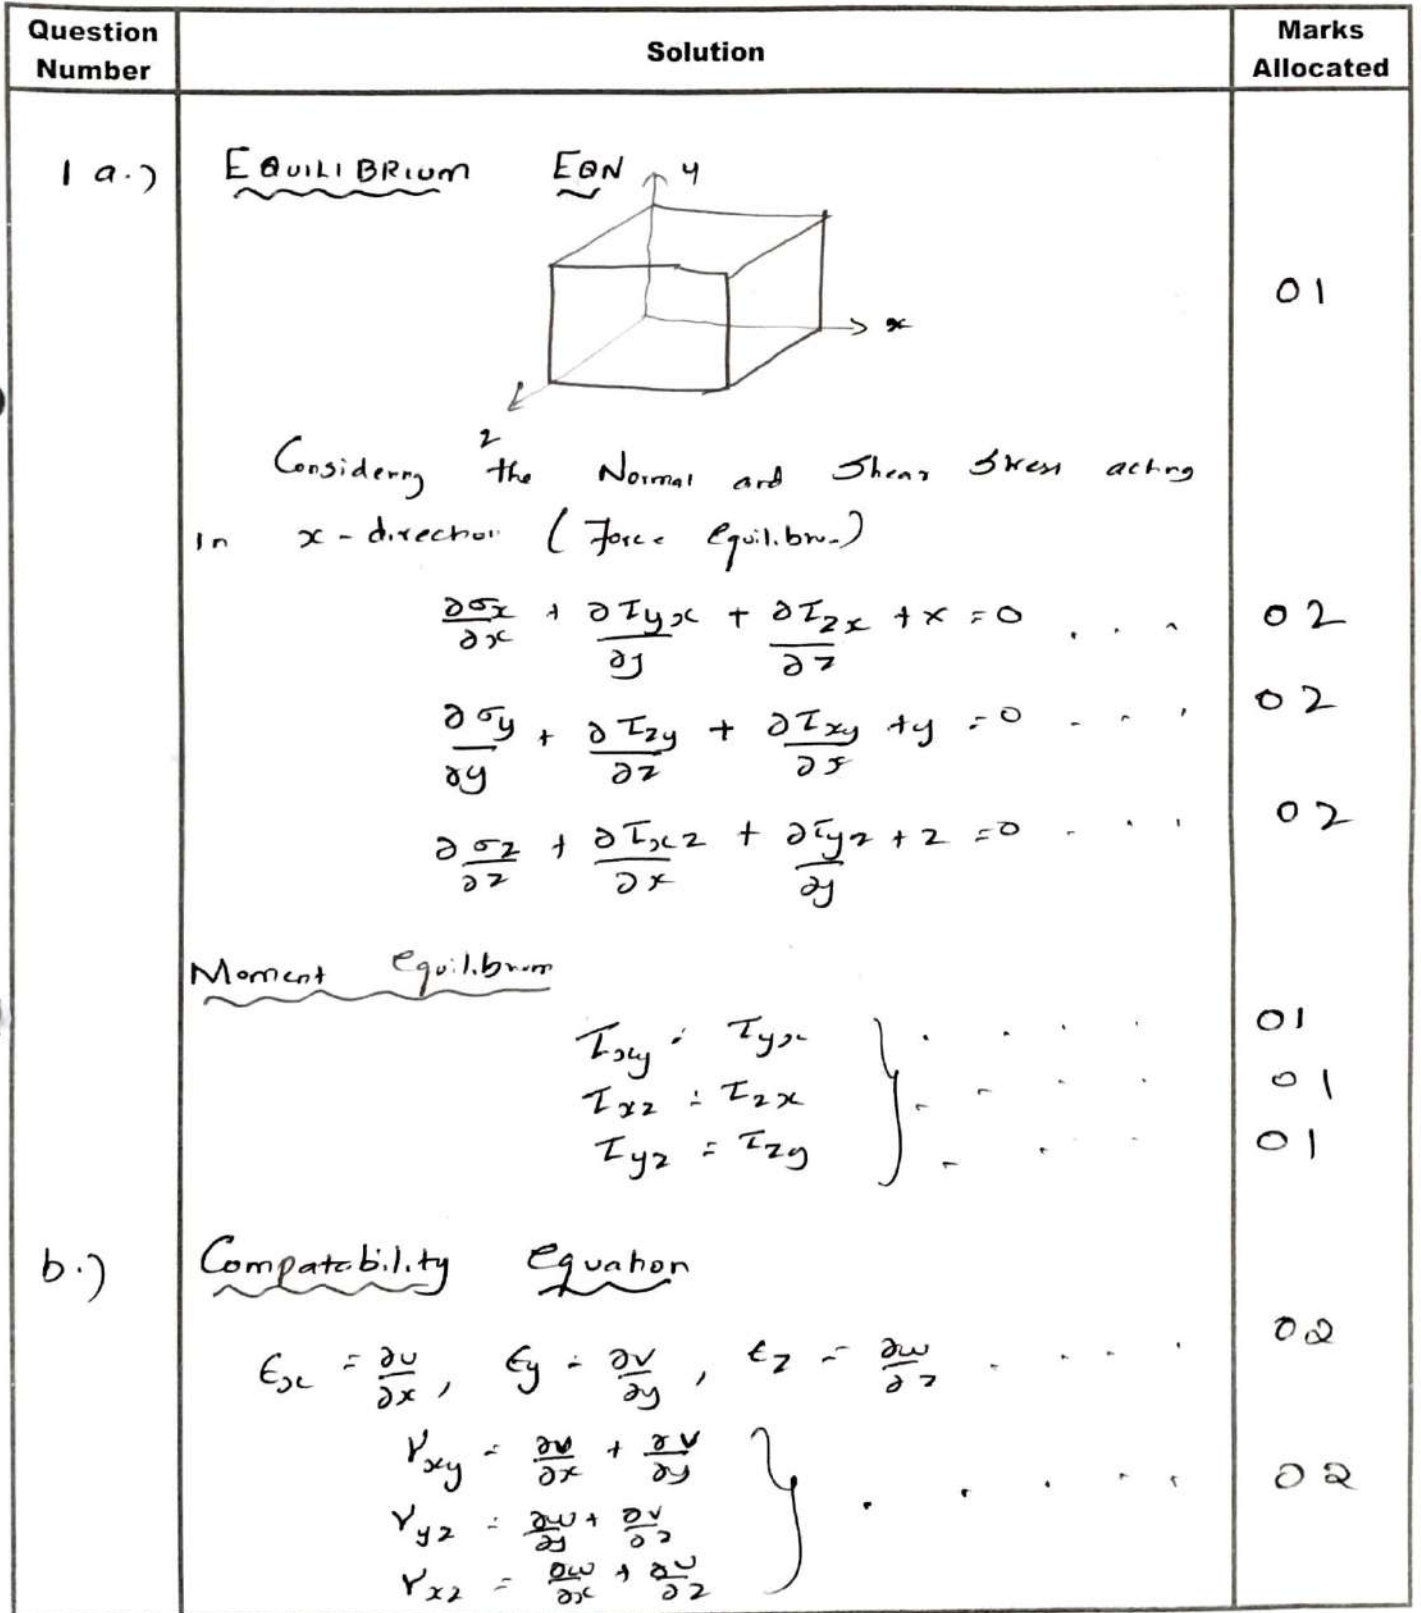 Question Number | Solution | Marks Allocated
1 a.) EQUILIBRIUM EQN
y
x
z
01
Considering the Normal and Shear Stress acting
in x-direction (Force Equilibrium)
∂σx/∂x + ∂τyx/∂y + ∂τzx/∂z + x = 0 . . . 02
∂σy/∂y + ∂τzy/∂z + ∂τxy/∂x + y = 0 . . . 02
∂σz/∂z + ∂τxz/∂x + ∂τyz/∂y + z = 0 . . . 02
Moment Equilibrium
τxy = τyx . . . . 01
τxz = τzx . . . . 01
τyz = τzy . . . 01
b.) Compatability Equation
εx = ∂u/∂x, εy = ∂v/∂y, εz = ∂w/∂z . . . . 02
γxy = ∂v/∂x + ∂v/∂y
γyz = ∂w/∂y + ∂v/∂z . . . . . 02
γxz = ∂w/∂x + ∂u/∂z